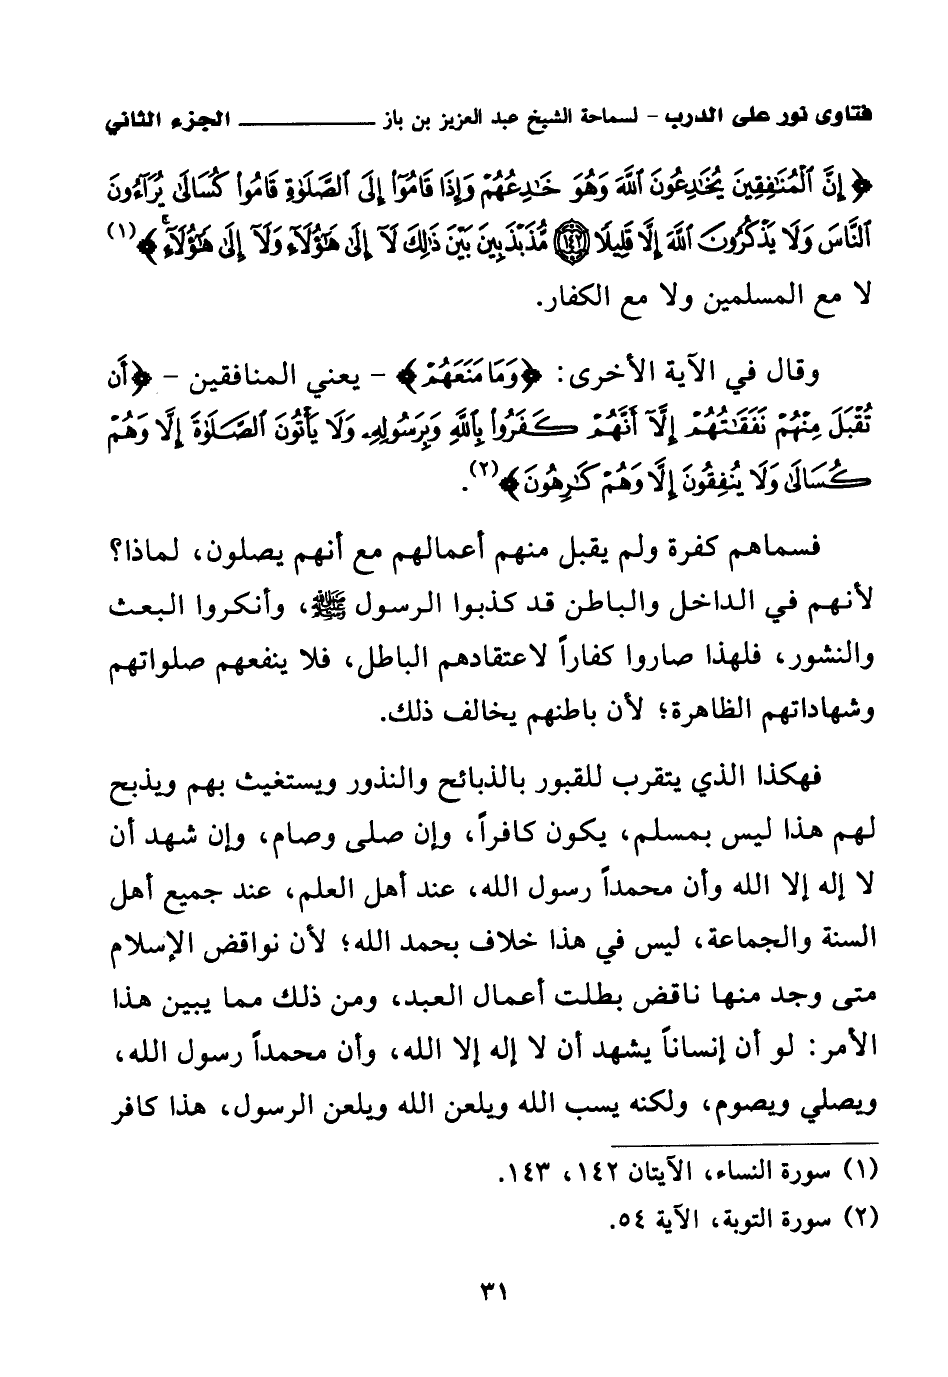 فتاوى نور على الدرب - لسماحة الشيخ عبد العزيز بن باز ـــــــــــــ الجزء الثاني
﴿إِنَّ ٱلۡمُنَٰفِقِينَ يُخَٰدِعُونَ ٱللَّهَ وَهُوَ خَٰدِعُهُمۡ وَإِذَا قَامُوٓاْ إِلَى ٱلصَّلَوٰةِ قَامُواْ كُسَالَىٰ يُرَآءُونَ
ٱلنَّاسَ وَلَا يَذۡكُرُونَ ٱللَّهَ إِلَّا قَلِيلًا ١٤٢ مُّذَبۡذَبِينَ بَيۡنَ ذَٰلِكَ لَآ إِلَىٰ هَٰٓؤُلَآءِ وَلَآ إِلَىٰ هَٰٓؤُلَآءِۚ﴾(١)
لا مع المسلمين ولا مع الكفار.
وقال في الآية الأخرى: ﴿وَمَا مَنَعَهُمۡ﴾ - يعني المنافقين - ﴿أَن
تُقۡبَلَ مِنۡهُمۡ نَفَقَٰتُهُمۡ إِلَّآ أَنَّهُمۡ كَفَرُواْ بِٱللَّهِ وَبِرَسُولِهِۦ وَلَا يَأۡتُونَ ٱلصَّلَوٰةَ إِلَّا وَهُمۡ
كُسَالَىٰ وَلَا يُنفِقُونَ إِلَّا وَهُمۡ كَٰرِهُونَ﴾(٢).
فسماهم كفرة ولم يقبل منهم أعمالهم مع أنهم يصلون، لماذا؟
لأنهم في الداخل والباطن قد كذبوا الرسول ﷺ، وأنكروا البعث
والنشور، فلهذا صاروا كفاراً لاعتقادهم الباطل، فلا ينفعهم صلواتهم
وشهاداتهم الظاهرة؛ لأن باطنهم يخالف ذلك.
فهكذا الذي يتقرب للقبور بالذبائح والنذور ويستغيث بهم ويذبح
لهم هذا ليس بمسلم، يكون كافراً، وإن صلى وصام، وإن شهد أن
لا إله إلا الله وأن محمداً رسول الله، عند أهل العلم، عند جميع أهل
السنة والجماعة، ليس في هذا خلاف بحمد الله؛ لأن نواقض الإسلام
متى وجد منها ناقض بطلت أعمال العبد، ومن ذلك مما يبين هذا
الأمر: لو أن إنساناً يشهد أن لا إله إلا الله، وأن محمداً رسول الله،
ويصلي ويصوم، ولكنه يسب الله ويلعن الله ويلعن الرسول، هذا كافر
(١) سورة النساء، الآيتان ١٤٢، ١٤٣.
(٢) سورة التوبة، الآية ٥٤.
٣١